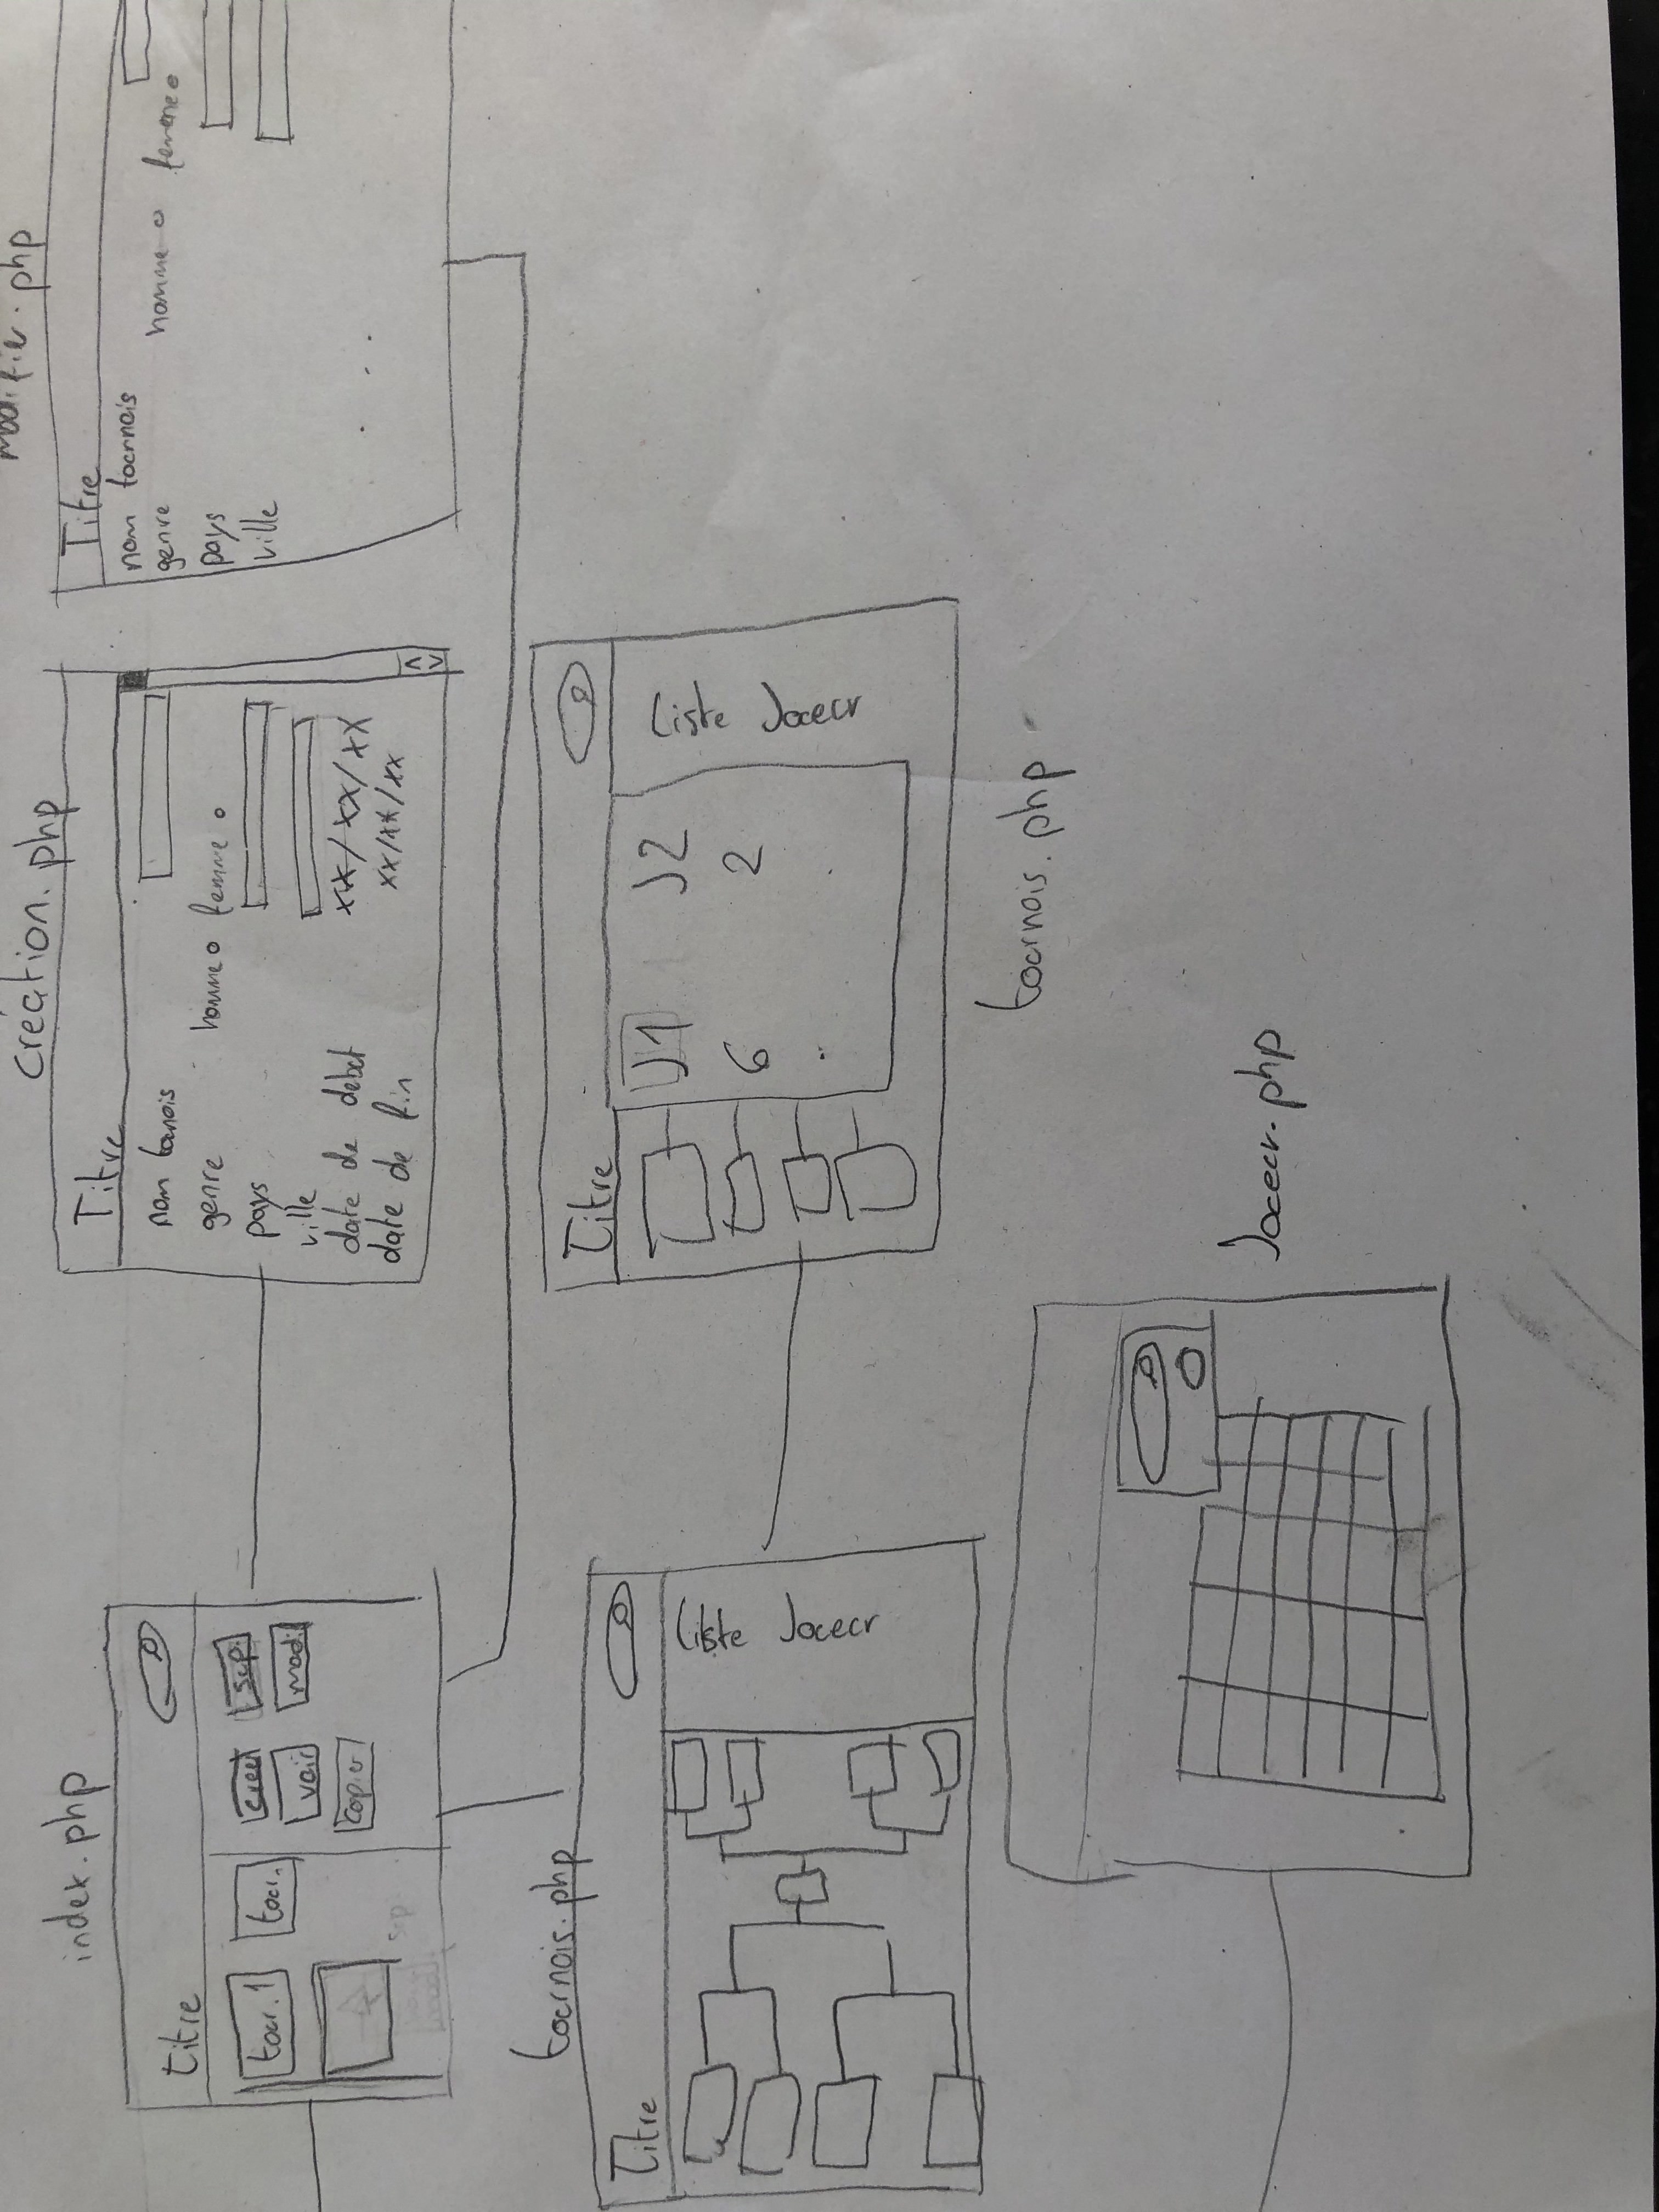 index.php
Titre
tour.1 tour.
creer sup.
voir modi
copier
sup
création.php
Titre
nom tournois
genre homme femme
pays
ville
date de debut xx/xx/xx
date de fin xx/xx/xx
modifier.php
Titre
nom tournois
genre homme femme
pays
ville
. . .
tournois.php
Titre
liste Joueur
Titre
J1 J2
6 2
. .
liste Joueur
tournois.php
Joueur.php